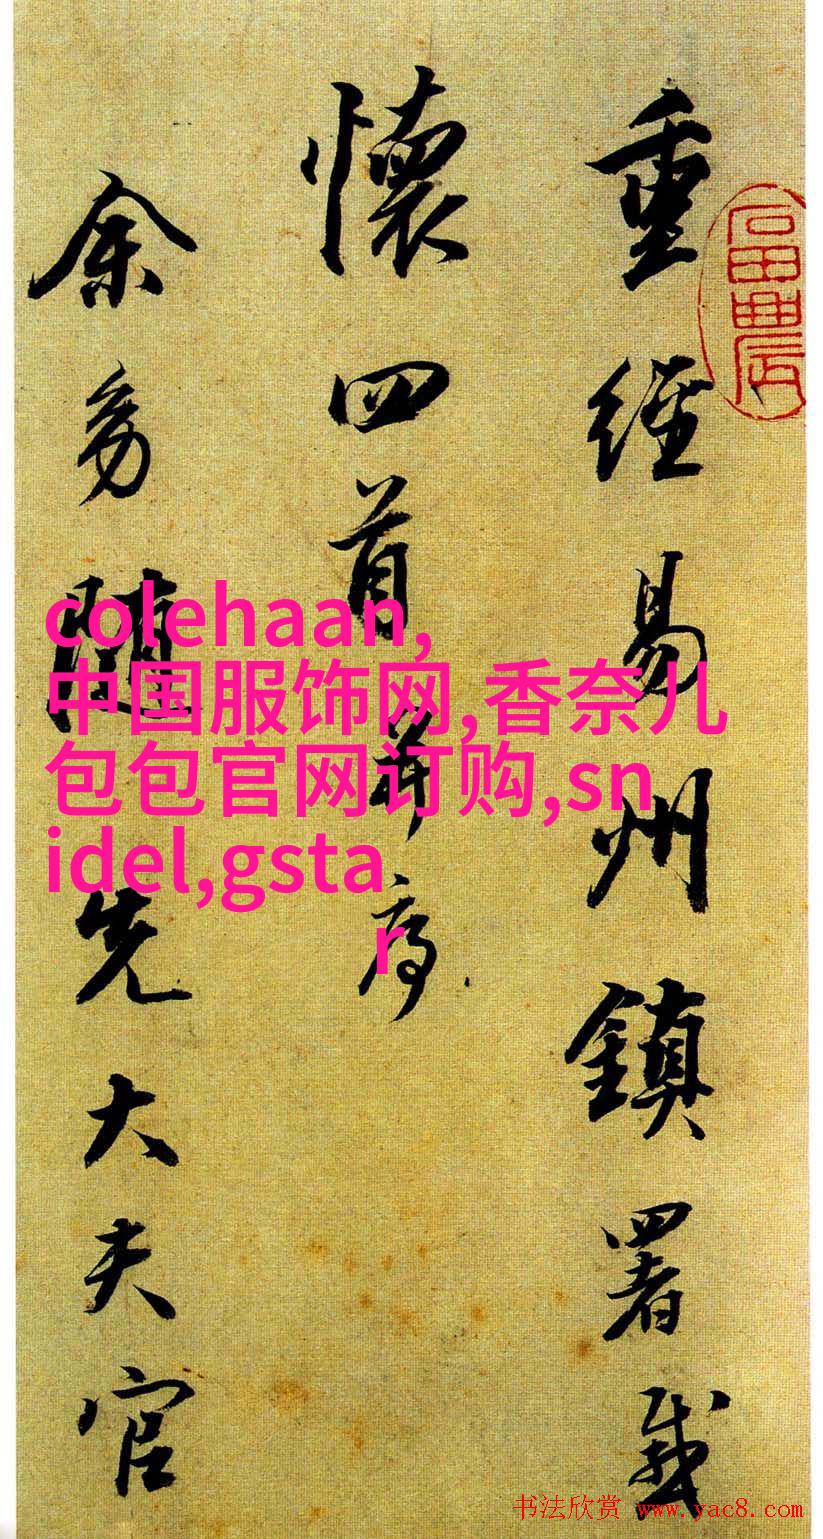 重經易州鎮署感
懷四首并序
余幼隨先大夫官
colehaan,
中国服饰网,香奈儿
包包官网订购,sn
idel,gsta
r
书法欣赏 www.yac8.com